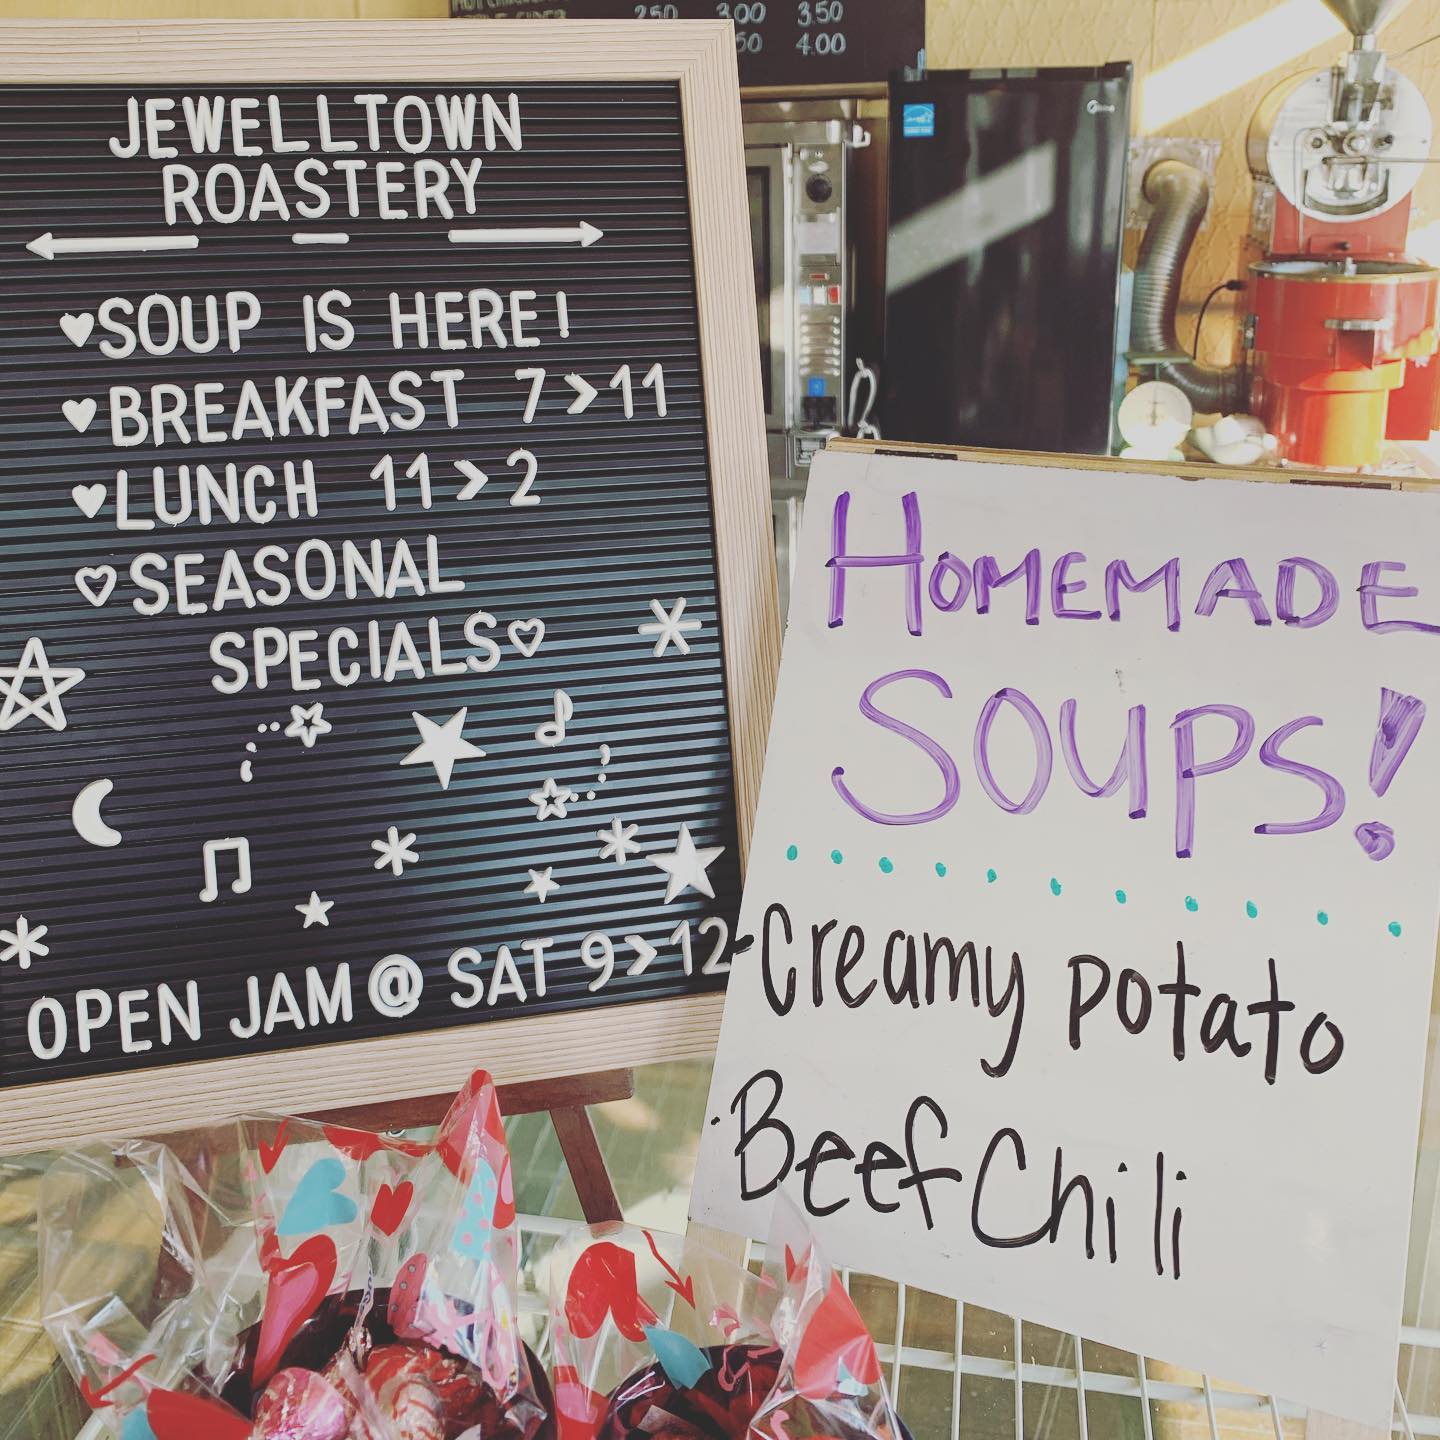 2.50 3.00 3.50
50 4.00
JEWELLTOWN
ROASTERY
SOUP IS HERE!
BREAKFAST 7>11
LUNCH 11>2
SEASONAL
SPECIALS
OPEN JAM @ SAT 9>12
HOMEMADE
SOUPS!
-Creamy potato
·Beef Chili